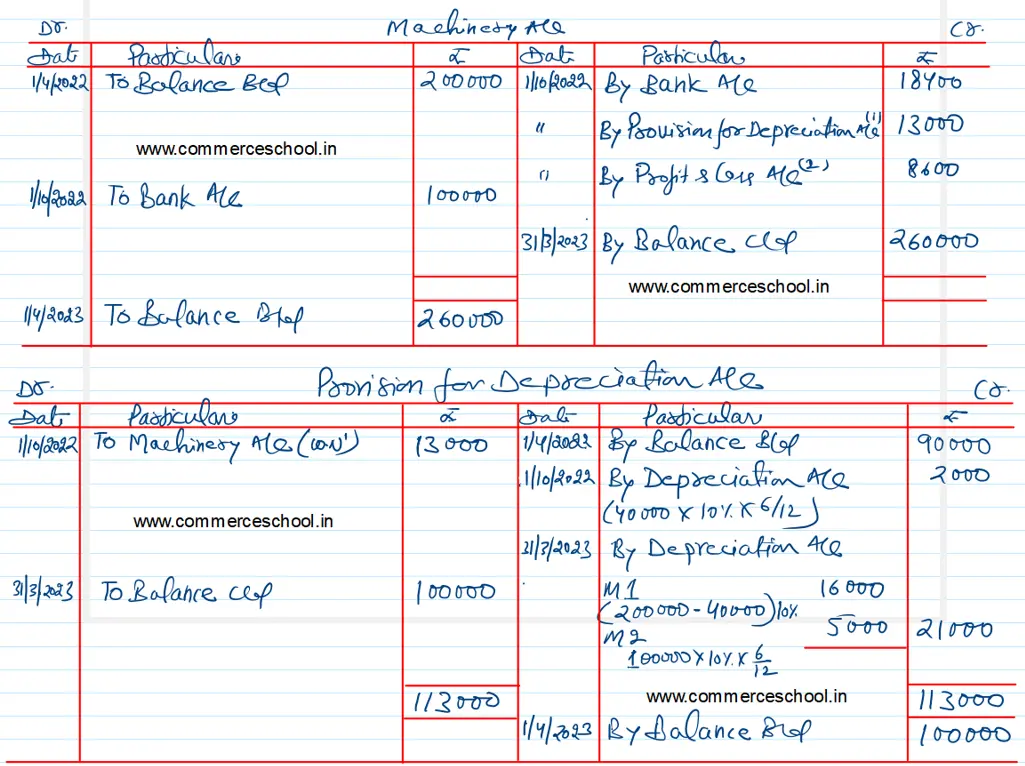 Dr. Machinery A/c Cr.
Date Particulars ₹ Date Particular ₹
1/4/2022 To Balance B/d 200000 1/10/2022 By Bank A/c 18400
" By Provision for Depreciation A/c (1) 13000
www.commerceschool.in
" By Profit & Loss A/c (2) 8600
1/10/2022 To Bank A/c 100000
31/3/2023 By Balance C/d 260000
www.commerceschool.in
1/4/2023 To Balance B/d 260000
Dr. Provision for Depreciation A/c Cr.
Date Particulars ₹ Date Particular ₹
1/10/2022 To Machinery A/c (WN1) 13000 1/4/2022 By Balance B/d 90000
1/10/2022 By Depreciation A/c 2000
(40000 X 10% X 6/12)
www.commerceschool.in
31/3/2023 By Depreciation A/c
31/3/2023 To Balance c/d 100000 M1 16000
(200000 - 40000) 10%
M2 5000 21000
100000 X 10% X 6/12
113000 www.commerceschool.in 113000
1/4/2023 By Balance B/d 100000